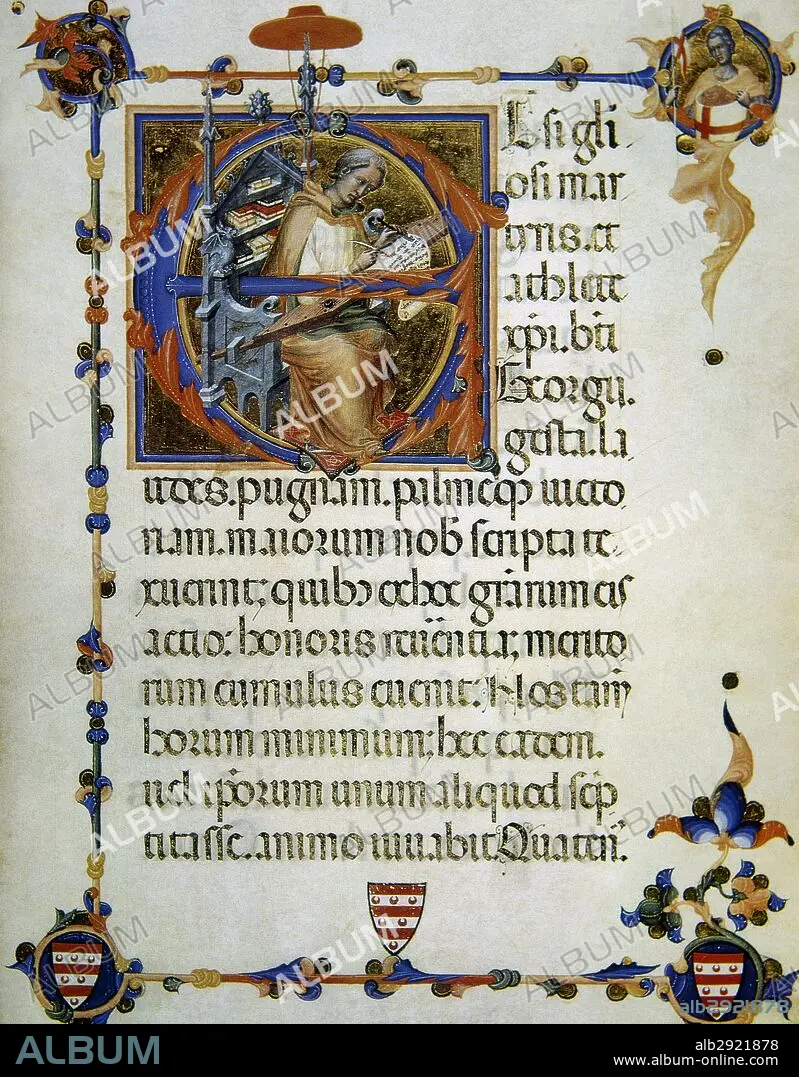 Etsi gl̅i
osi mar
tyris. et
athlete
xp̅i. bt̅i
Georgii.
gesta. la
udes. pugnam. palmeq̅ uicto
riam. maiorum nob̅ scripta te
xuerint; quibꝯ et hec
actio: honoris reuerentia; merito
rum cumulus euenit: Nos tam̅
horum minimum: hec eadem.
uel ip̅orum unum aliquod scp̅
titasse. animo iuuabit. Quaten̅.
ALBUM
alb2921878
www.album-online.com